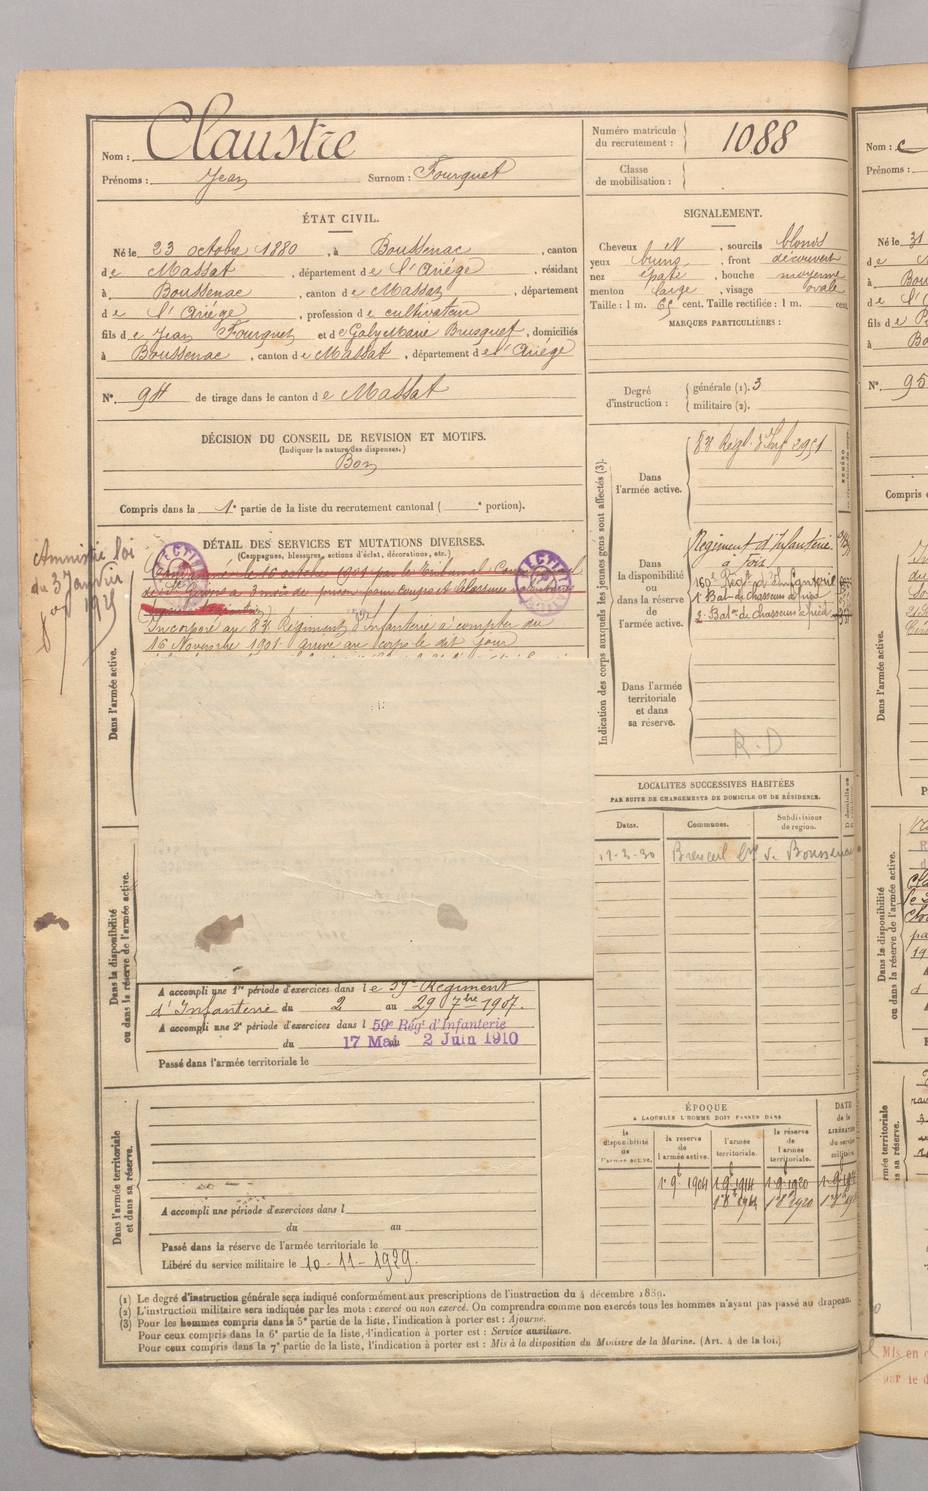 Nom : Claustre
Prénoms : Jean Surnom : Fourquet
ÉTAT CIVIL.
Né le 23 octobre 1880, à Boussenac, canton
de Massat, département de l'Ariége, résidant
à Boussenac, canton de Massat, département
de l'Ariége, profession de cultivateur
fils de Jean Fourquet et de Galy Marie Brusquet, domiciliés
à Boussenac, canton de Massat, département de l'Ariége
N° 94 de tirage dans le canton de Massat
DÉCISION DU CONSEIL DE REVISION ET MOTIFS.
(Indiquer la nature des dispenses.)
Bon
Compris dans la 1e partie de la liste du recrutement cantonal ( e portion).
Numéro matricule du recrutement : 1088
Classe de mobilisation :
SIGNALEMENT.
Cheveux N, sourcils blonds
yeux bruns, front découvert
nez épaté, bouche moyenne
menton large, visage ovale
Taille : 1 m. 65 cent. Taille rectifiée : 1 m. cent.
MARQUES PARTICULIÈRES :
Degré d'instruction : générale (1). 3
militaire (2).
DÉTAIL DES SERVICES ET MUTATIONS DIVERSES.
(Campagnes, blessures, actions d'éclat, décorations, etc.)
Amnistié loi
du 3 Janvier
1925
le 16 octobre 1901 par le Tribunal
à 3 mois de prison pour coups et blessures
Incorporé au 83 Régiment d'Infanterie à compter du
16 Novembre 1901. arrivé au corps le dit jour
Dans l'armée active.
Indication des corps auxquels les jeunes gens sont affectés (3).
Dans l'armée active. 83 Régt. d'Inf 2951
Dans la disponibilité ou dans la réserve de l'armée active.
Régiment d'Infanterie
à Foix
160e Regt d'Infanterie
1r Bat. de chasseurs à pied
2e Baton de chasseurs à pied
Dans l'armée territoriale et dans sa réserve.
R.D
LOCALITES SUCCESSIVES HABITÉES
PAR SUITE DE CHANGEMENTS DE DOMICILE OU DE RÉSIDENCE.
Dates. Communes. Subdivisions de région.
Dans la disponibilité ou dans la réserve de l'armée active.
A accompli une 1re période d'exercices dans le 59e Régiment
d'Infanterie du 2 au 29 7bre 1907.
A accompli une 2e période d'exercices dans l 59e Régt d'Infanterie
du 17 Mai au 2 Juin 1910
Passé dans l'armée territoriale le
Dans l'armée territoriale et dans sa réserve.
A accompli une période d'exercices dans l
du au
Passé dans la réserve de l'armée territoriale le
Libéré du service militaire le 10-11-1929.
ÉPOQUE
A LAQUELLE L'HOMME DOIT PASSER DANS
la disponibilité de l'armée active. la réserve de l'armée active. l'armée territoriale. la réserve de l'armée territoriale. DATE de la LIBÉRATION du service militaire.
1. 9b 1904 1. 9b 1914 1. 9b 1920
1er 8b 1920
(1) Le degré d'instruction générale sera indiqué conformément aux prescriptions de l'instruction du 4 décembre 1889.
(2) L'instruction militaire sera indiquée par les mots : exercé ou non exercé. On comprendra comme non exercés tous les hommes n'ayant pas passé au drapeau.
(3) Pour les hommes compris dans la 5e partie de la liste, l'indication à porter est : Ajourné.
Pour ceux compris dans la 6e partie de la liste, l'indication à porter est : Service auxiliaire.
Pour ceux compris dans la 7e partie de la liste, l'indication à porter est : Mis à la disposition du Ministre de la Marine. (Art. 4 de la loi.)